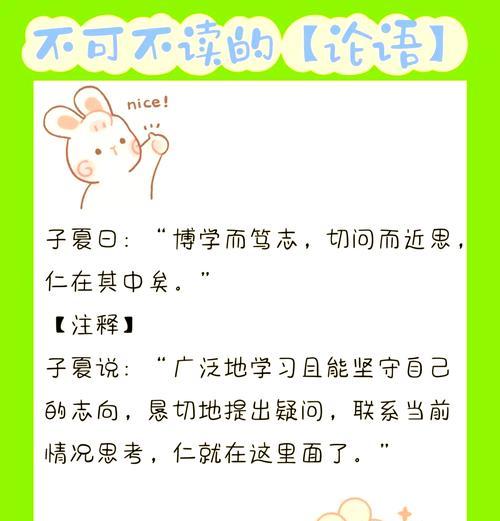 不可不读的【论语】
nice!
子夏曰：“博学而笃志，切问而近思，
仁在其中矣。”
【注释】
子夏说：“广泛地学习且能坚守自己
的志向，恳切地提出疑问，联系当前
情况思考，仁就在这里面了。”